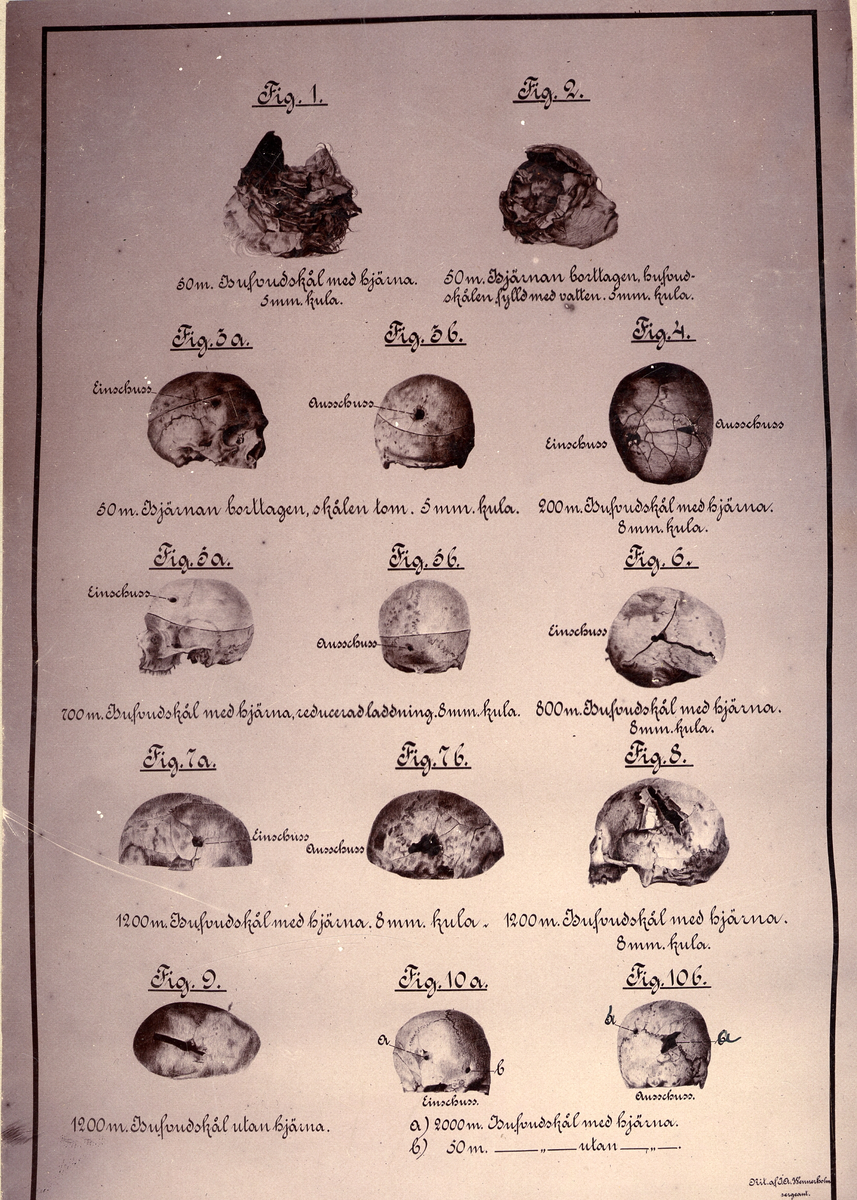 Fig. 1.
Fig. 2.
50 m. Hufvudskål med hjärna.
5 mm. kula.
50 m. Hjärnan borttagen, hufvud-
skålen fylld med vatten. 5 mm. kula.
Fig. 3 a.
Fig. 3 b.
Fig. 4.
Einschuss
Ausschuss
Einschuss
Ausschuss
50 m. Hjärnan borttagen, skålen tom. 5 mm. kula.
200 m. Hufvudskål med hjärna.
8 mm. kula.
Fig. 5 a.
Fig. 5 b.
Fig. 6.
Einschuss
Ausschuss
Einschuss
700 m. Hufvudskål med hjärna, reducerad laddning. 8 mm. kula.
800 m. Hufvudskål med hjärna.
8 mm. kula.
Fig. 7 a.
Fig. 7 b.
Fig. 8.
Einschuss
Ausschuss
1200 m. Hufvudskål med hjärna. 8 mm. kula.
1200 m. Hufvudskål med hjärna.
8 mm. kula.
Fig. 9.
Fig. 10 a.
Fig. 10 b.
a
b
b
a
Einschuss.
Ausschuss.
1200 m. Hufvudskål utan hjärna.
a) 2000 m. Hufvudskål med hjärna.
b) 50 m. —„— utan —„—.
Rit. af J. A. Wennerholm
sergeant.